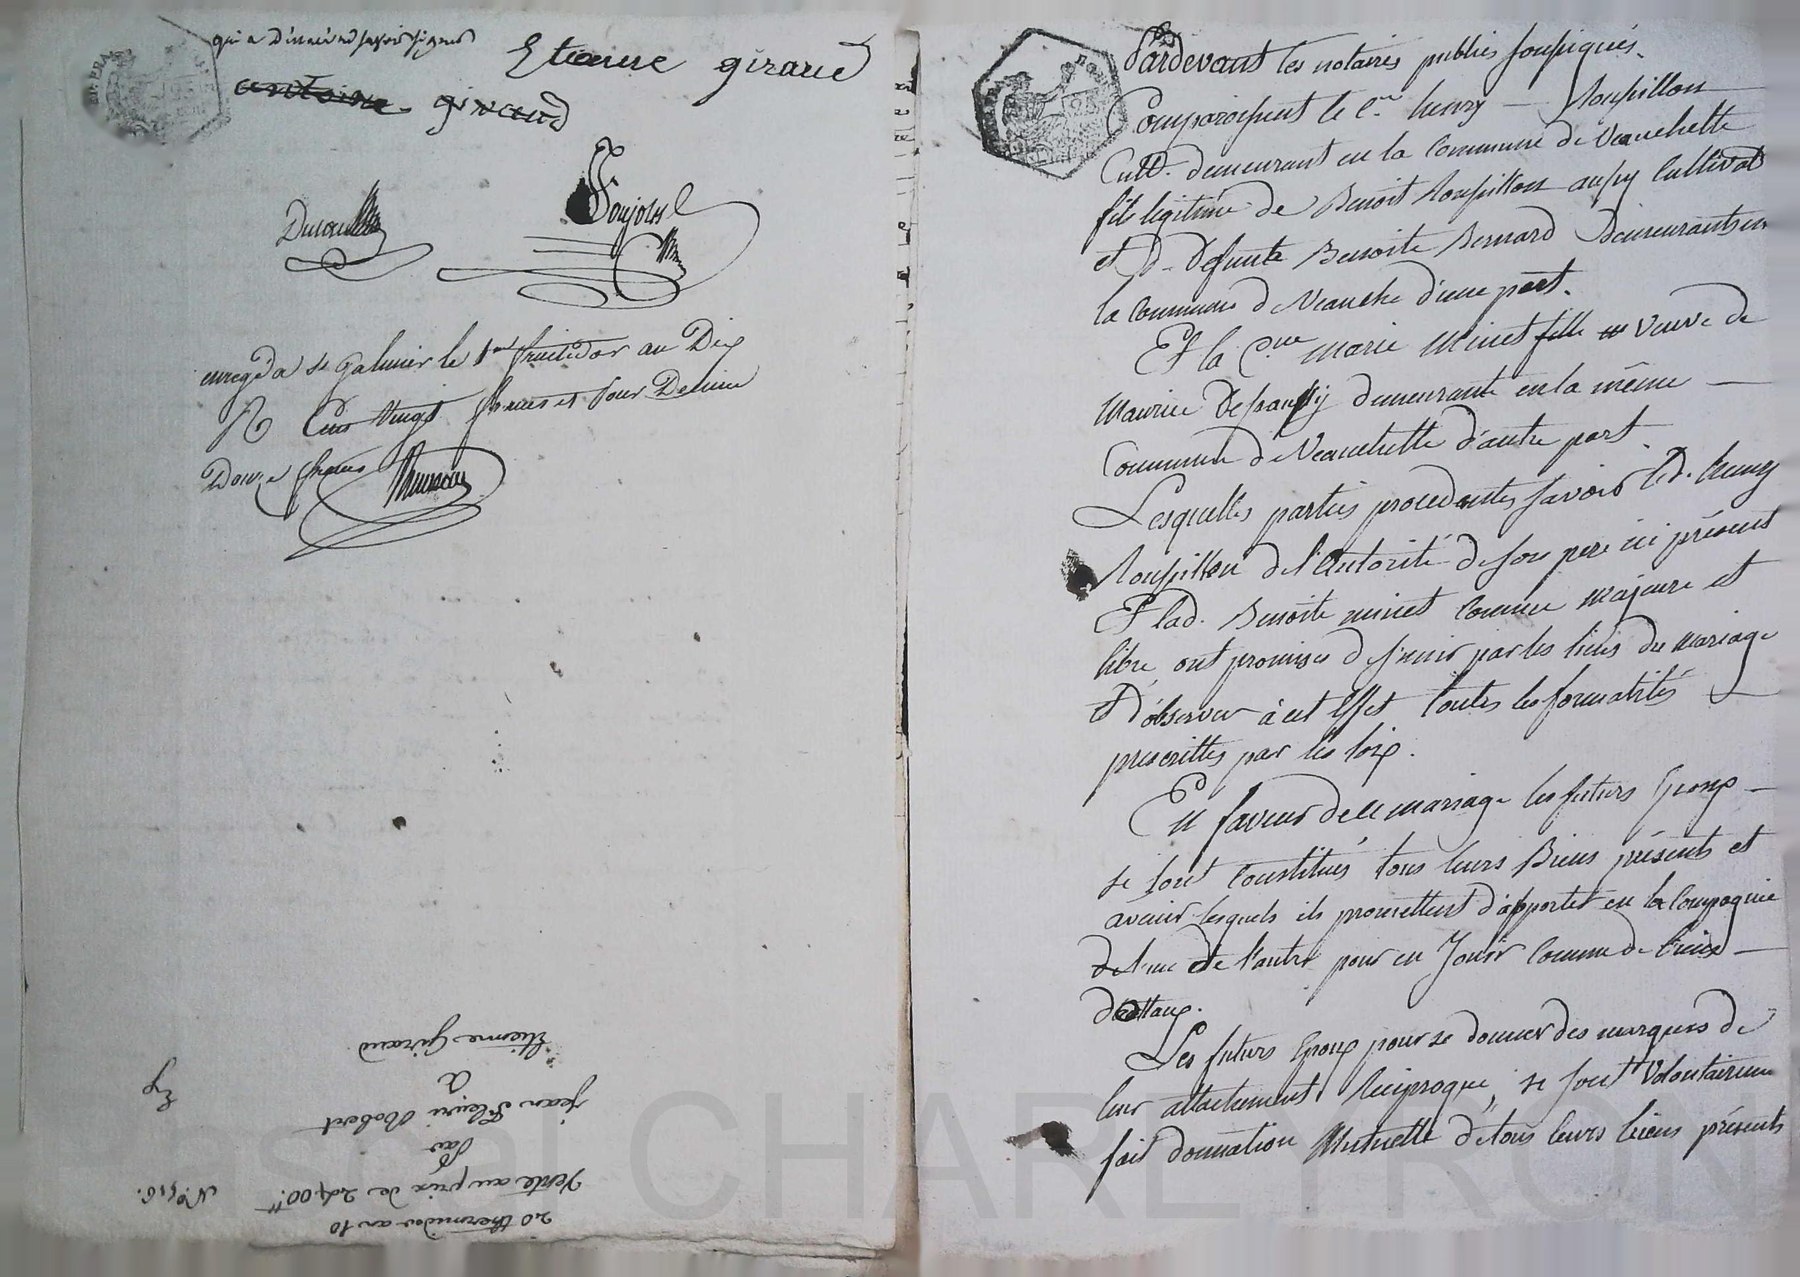 qui a déclaré ne savoir signer
Etienne giraud
antoine giraud
Pardevant les notaires publics soussignés
Comparoissent le C.en henry Roussillon
Cult. demeurant en la commune de Veauchette
fils légitime de Benoit Roussillon aussy Cultivat
et D. defunte Benoite Bernard demeurants en
la commune de Veauche d'une part.
Et la C.nne Marie Minet fille Veuve de
Maurice demeurante en la même
Commune de Veauchette d'autre part.
Lesquelles parties procedantes, savoir led. henry
Roussillon de l'autorité de son pere ici présent
Et lad. Benoite minet comme majeure et
libre, ont promises de s'unir par les liens du mariage
Et d'observer à cet Effet toutes les formalités
prescrittes par les loix.
En faveur de ce mariage les futurs Epoux
se sont Constitués tous leurs Biens présents et
avenir lesquels ils promettent d'apporter en la Compagnie
de l'un et de l'autre pour en Jouir comme de biens
dottaux.
Les futurs Epoux pour se donner des marques de
leur attachement Réciproque, se sont Volontairem
fait donnation Mutuelle de tous leurs biens présents
enreg.é a St Galmier le 1er fructidor an Dix
R Cent vingt francs et pour Decime
Douze francs
20 thermidor an 10
Vente au prix de 2400.tt
Par
jean fleuri Robert
a
Etienne Giraud
CHAREYRON